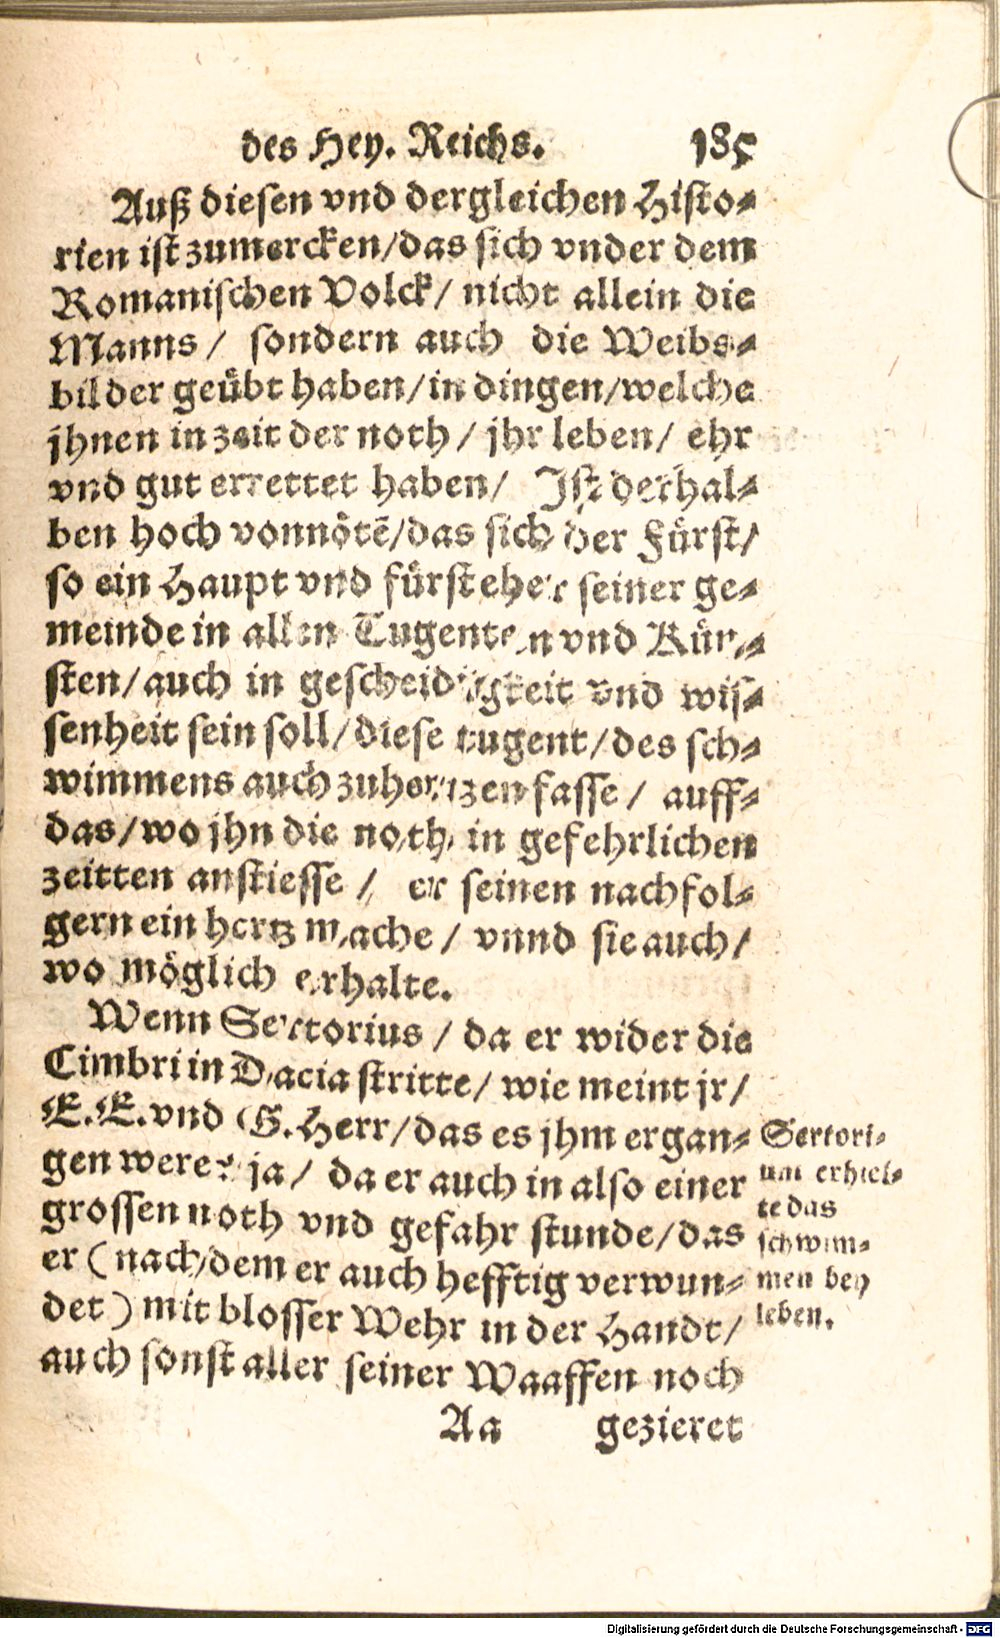 des Hey. Reichs. 185
Auß diesen vnd dergleichen Histo-
rien ist zumercken/das sich vnder dem
Romanischen Volck/ nicht allein die
Manns/ sondern auch die Weibs-
bilder geübt haben/in dingen/welche
jhnen in zeit der noth/ jhr leben/ ehr
vnd gut errettet haben/ Ist derhal-
ben hoch vonnötẽ/das sich der Fürst/
so ein Haupt vnd fürsteher seiner ge-
meinde in allen Tugenten vnd Kün-
sten/auch in gescheidigkeit vnd wis-
senheit sein soll/diese tugent/des sch-
wimmens auch zuhertzen fasse/ auff-
das/wo jhn die noth in gefehrlichen
zeitten anstiesse/ er seinen nachfol-
gern ein hertz mache/ vnnd sie auch/
wo möglich erhalte.
Wenn Sertorius/ da er wider die
Cimbri in Dacia stritte/ wie meint jr/
E.E.vnd G.Herr/das es jhm ergan-
gen were? ja/ da er auch in also einer
grossen noth vnd gefahr stunde/das
er (nach dem er auch hefftig verwun-
det) mit blosser Wehr in der Handt/
auch sonst aller seiner Waaffen noch
Aa gezieret
Sertori-
um erhiel-
te das
schwim-
men bey
leben.
Digitalisierung gefördert durch die Deutsche Forschungsgemeinschaft - DFG